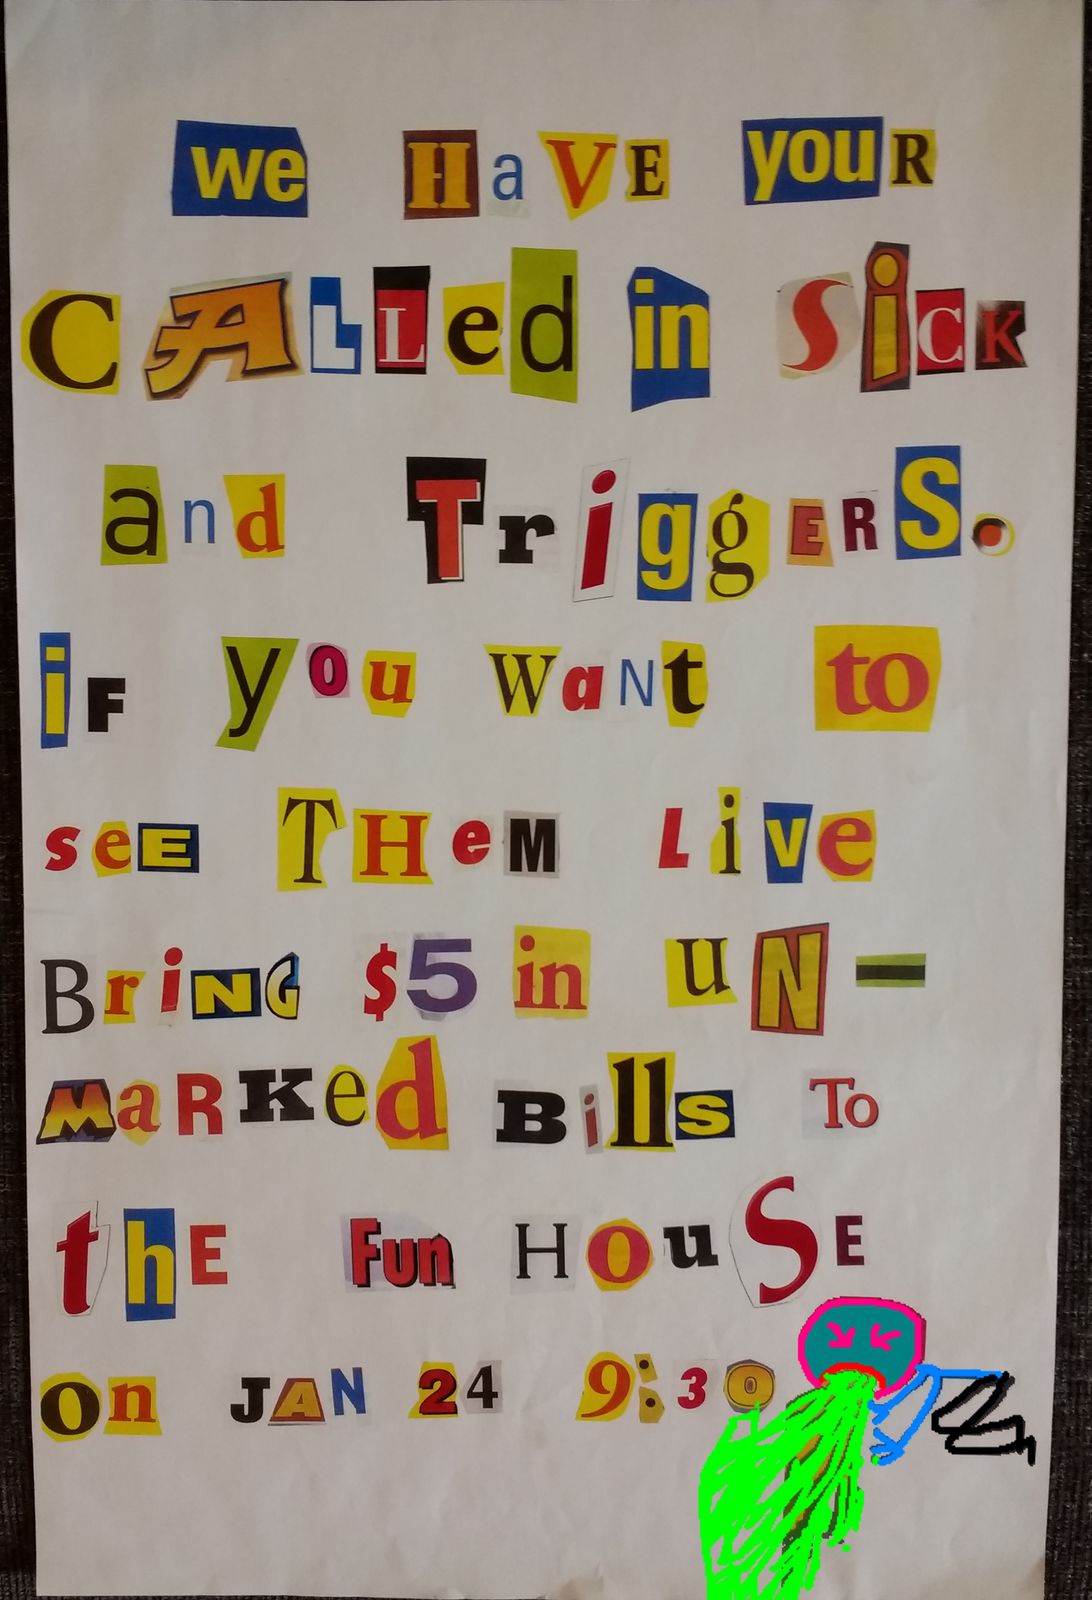 we HaVE youR
CALLed in SiCK
and TriggERS.
iF you WaNt to
seE THeM LivE
BriNG $5 in uN-
MaRKed Bills To
thE Fun HouSE
on JAN 24 9:30